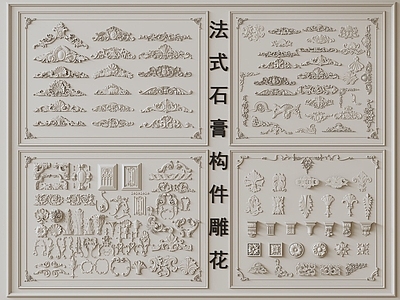 法式石膏构件雕花